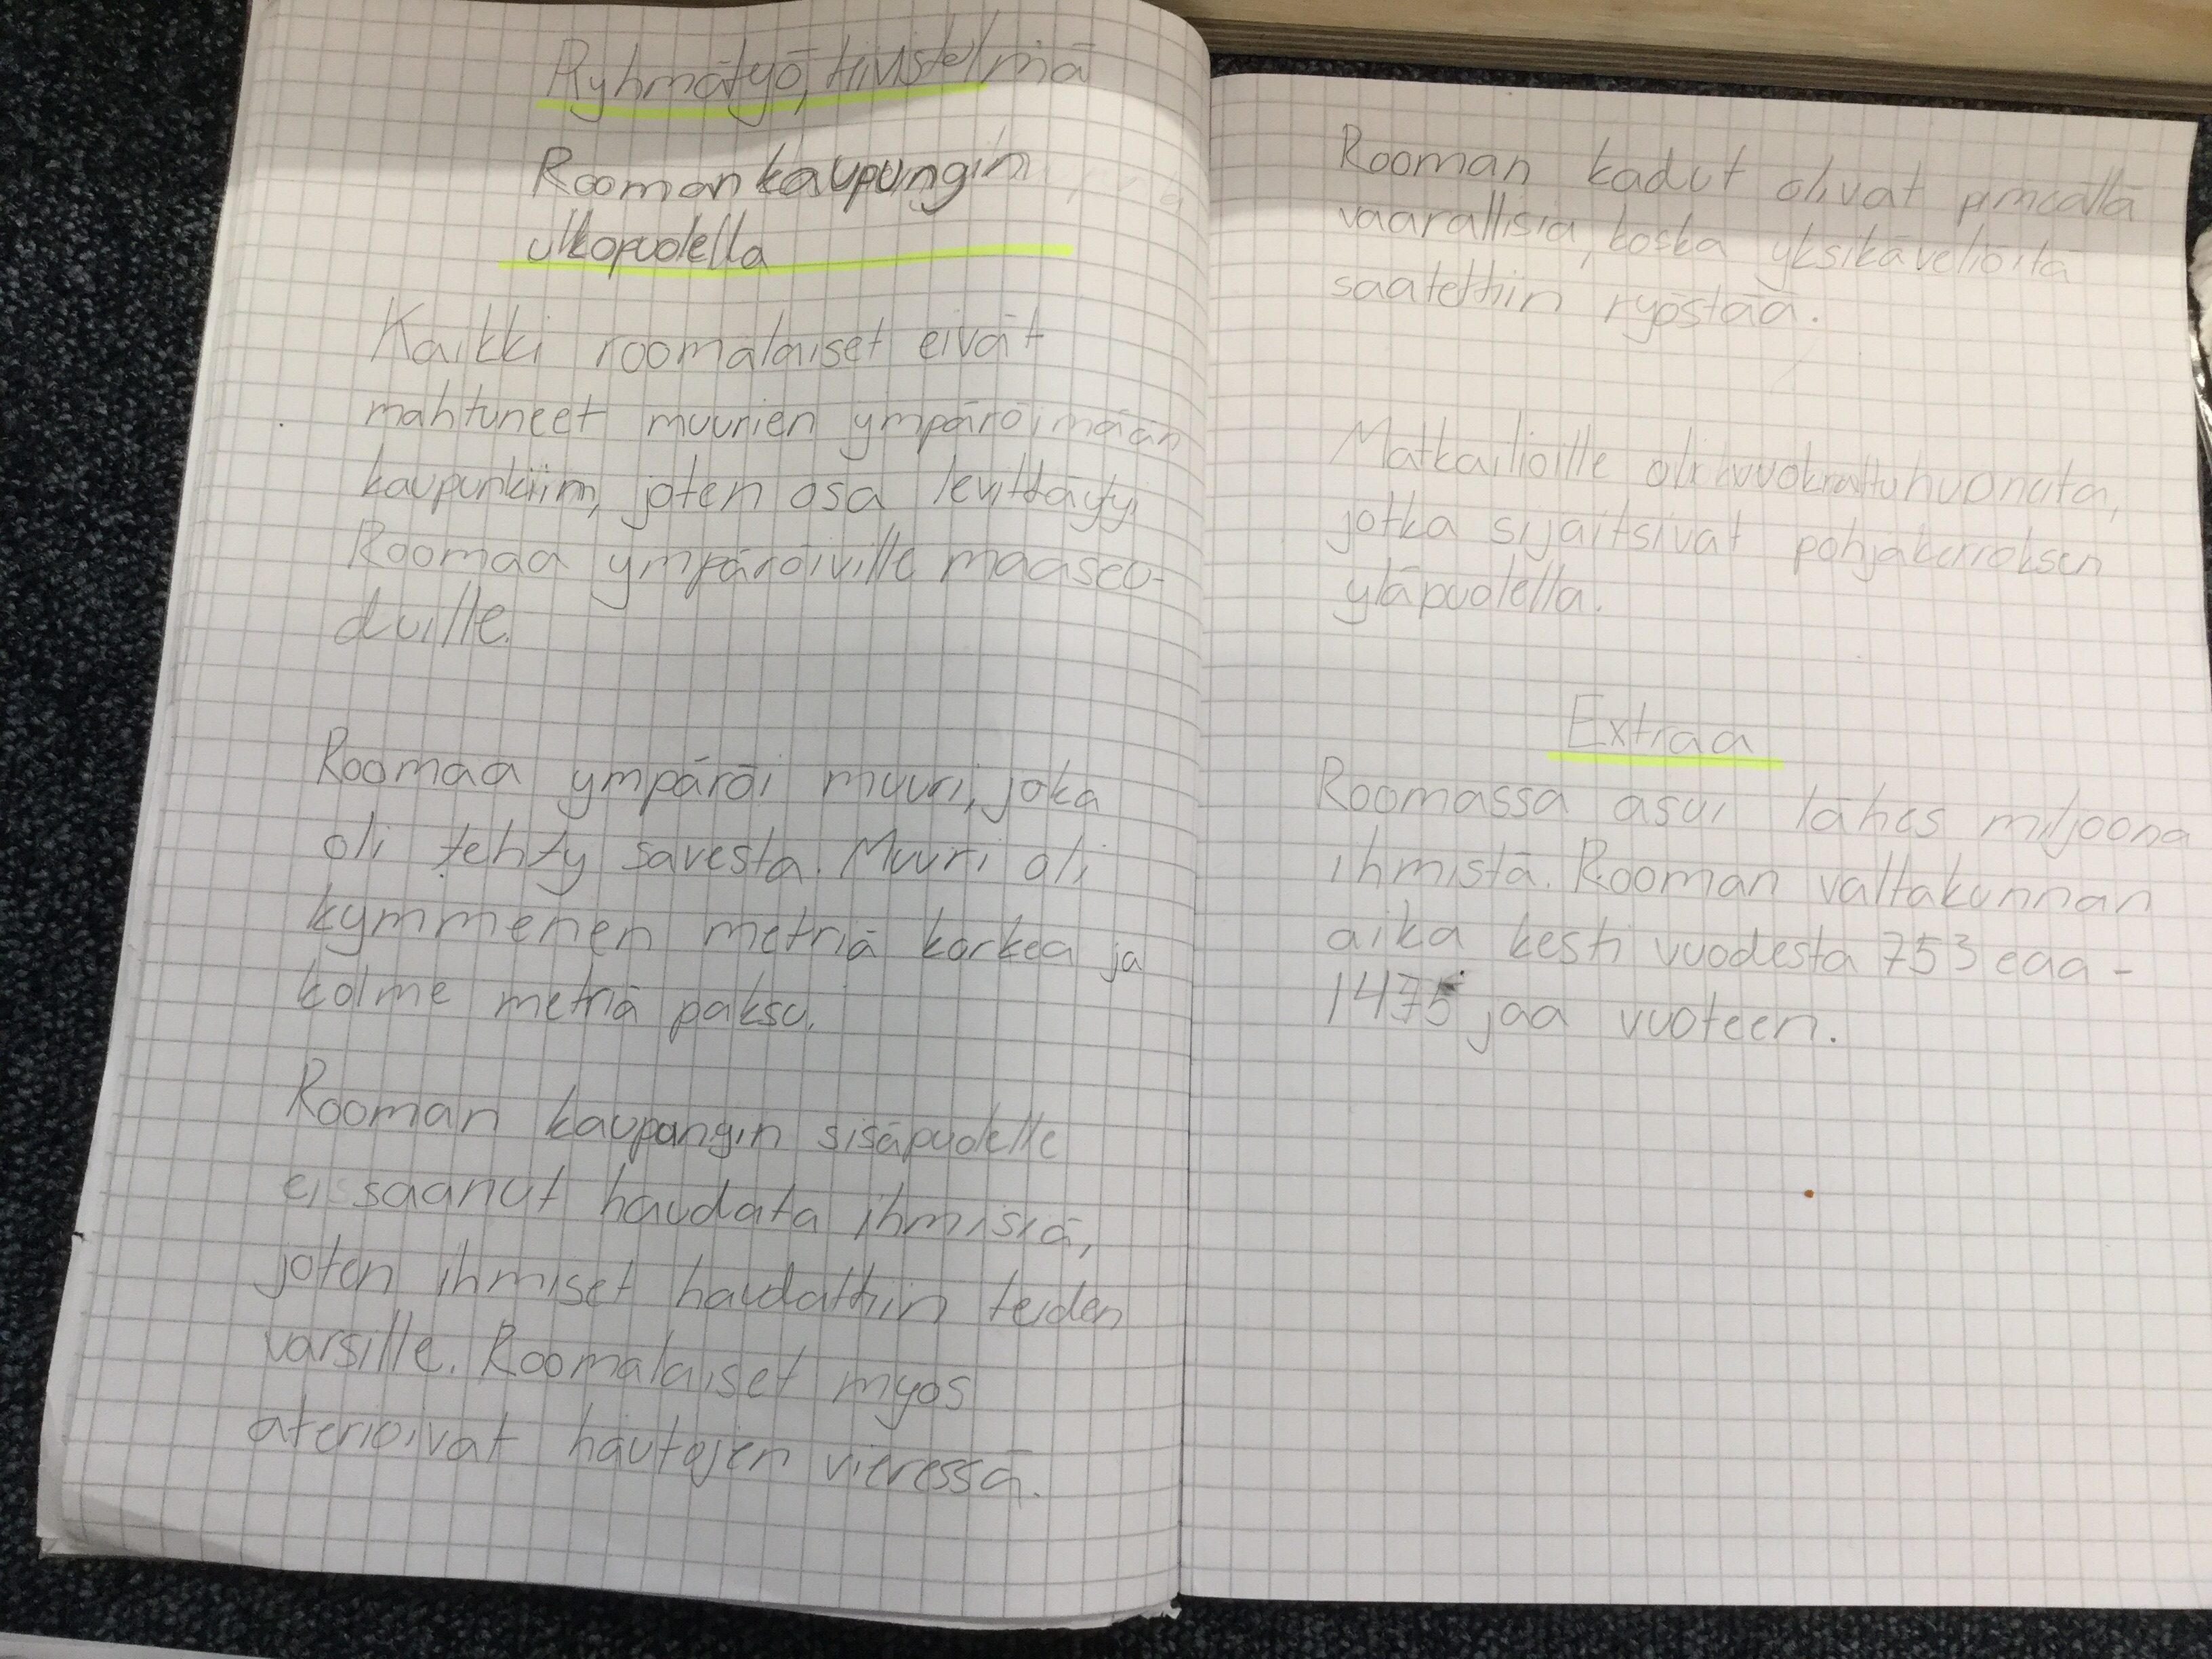 Ryhmätyö, tiivistelmä
Rooman kaupungin
ulkopuolella
Kaikki roomalaiset eivät
mahtuneet muurien ympäröimään
kaupunkiin, joten osa levittäytyi
Roomaa ympäröiville maaseu-
duille.
Roomaa ympäröi muuri, joka
oli tehty savesta. Muuri oli
kymmenen metriä korkea ja
kolme metriä paksu.
Rooman kaupungin sisäpuolelle
ei saanut haudata ihmisiä,
joten ihmiset haudattiin teiden
varsille. Roomalaiset myös
aterioivat hautojen vieressä.
Rooman kadut olivat pimeällä
vaarallisia, koska yksikävelijöitä
saatettiin ryöstää.
Matkailioille oli vuokrattu huoneita,
jotka sijaitsivat pohjakerroksen
yläpuolella.
Extraa
Roomassa asui lähes miljoona
ihmistä. Rooman valtakunnan
aika kesti vuodesta 753 eaa-
1475 jaa vuoteen.